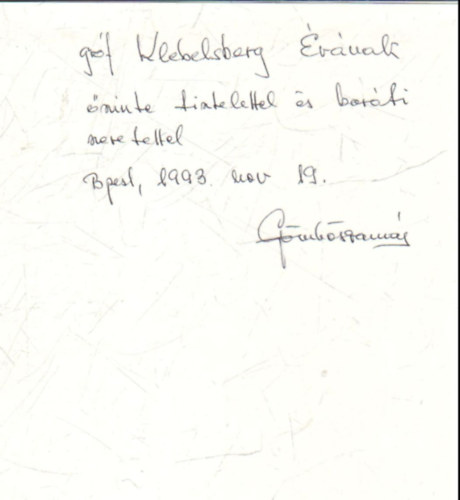 gróf Klebelsberg Évának
őszinte tisztelettel és baráti
szeretettel
Bpest, 1993. nov 19.
Gömbös Tamás